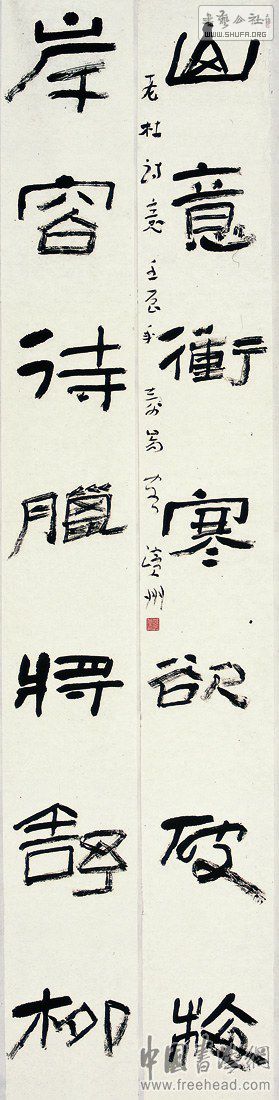 山意衝寒欲破梅
岸容待臘將舒柳
老杜詩意壬辰年
書藝公社
WWW.SHUFA.ORG
中國書法網
www.freehead.com